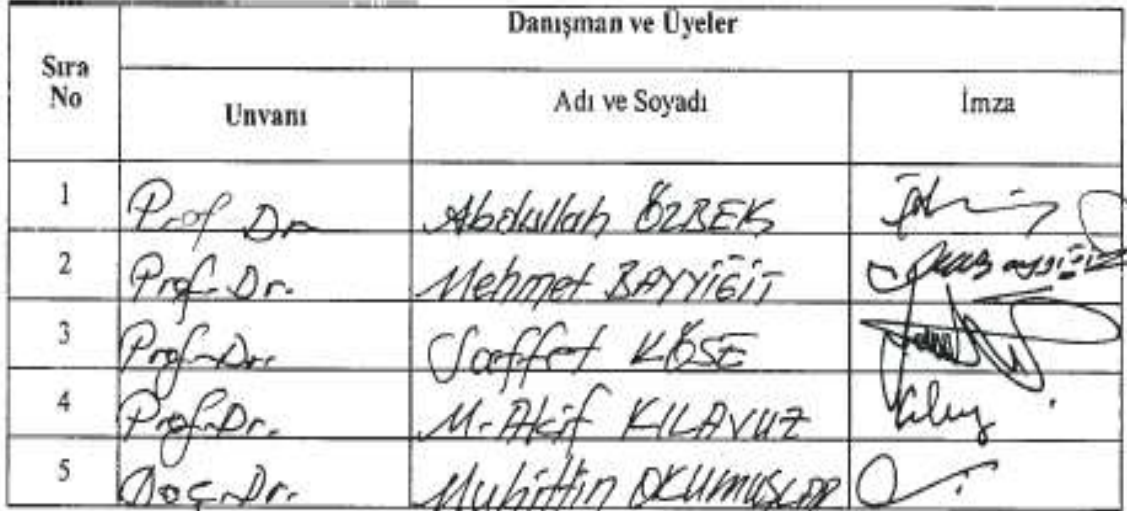 Danışman ve Üyeler
Sıra No Unvanı Adı ve Soyadı İmza
1 Prof Dr Abdullah ÖZBEK
2 Prof. Dr. Mehmet BAYYİĞİT
3 Prof. Dr. Saffet KÖSE
4 Prof. Dr. M. Akif KILAVUZ
5 Doç. Dr. Muhittin OKUMUŞLAR